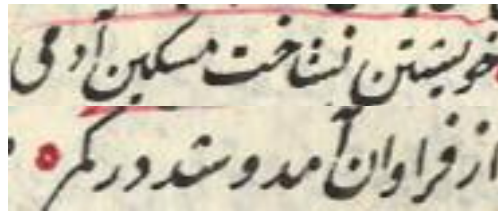 خویشتن نشناخت مسکین آدمی
از فراوان آمد و شد در کمی